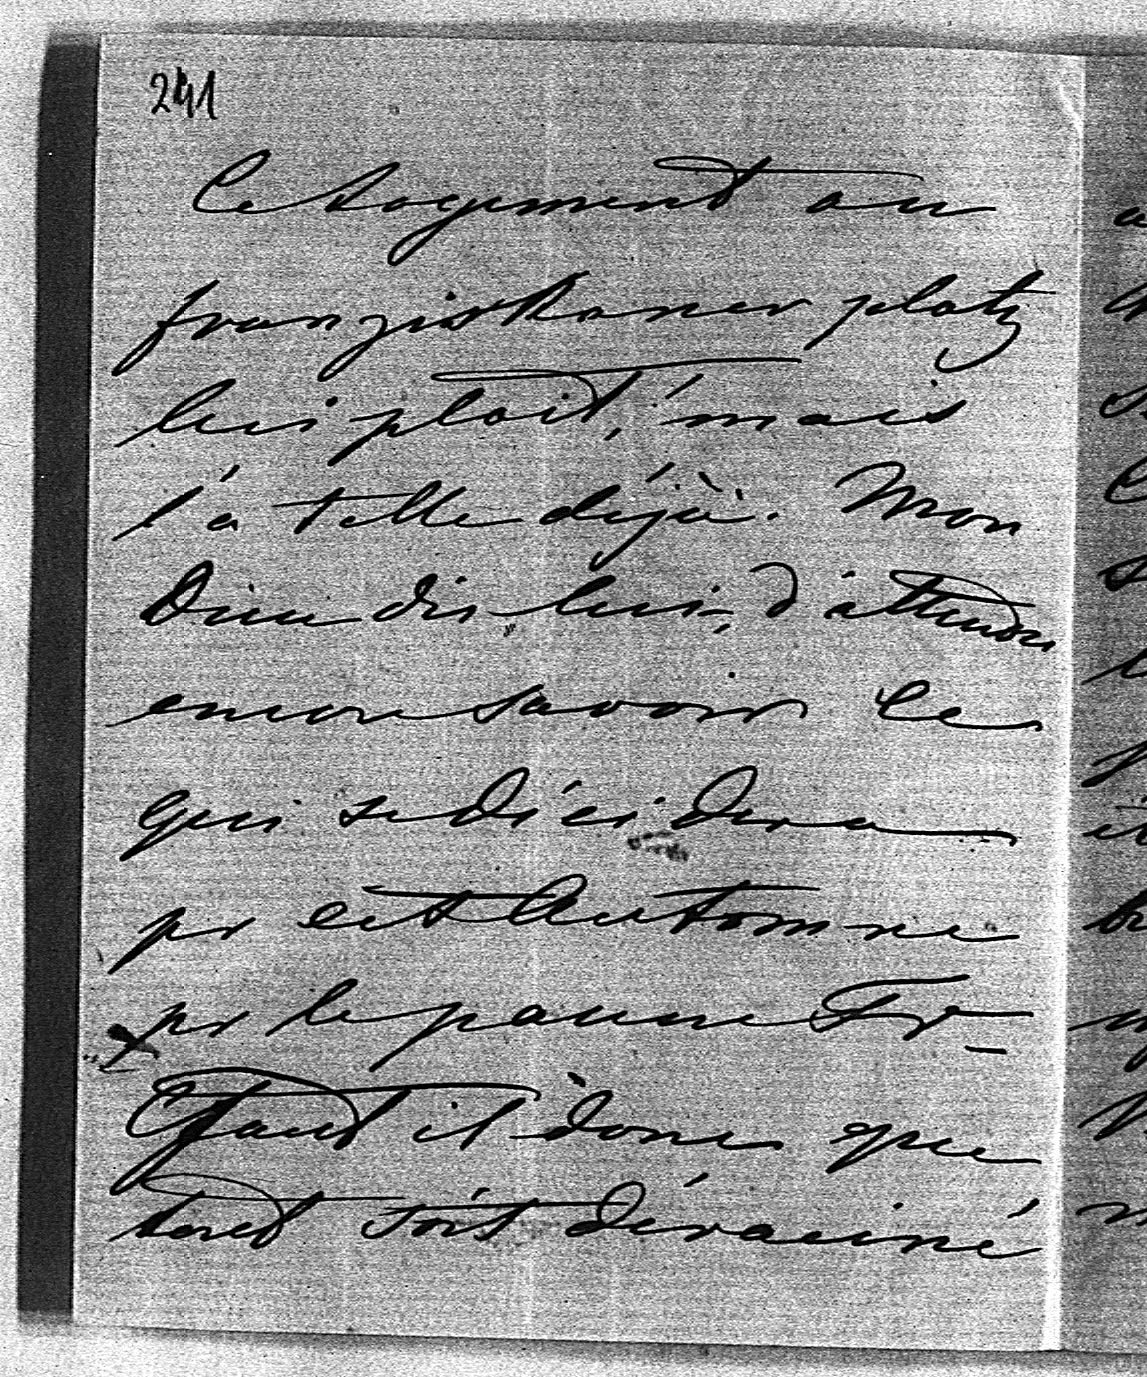 241
Ce logement au
franziskaner platz
lui plait, mais
l'a telle déjà. Mon
Dieu dis lui, d'attendre
encore savoir ce
qui se décidera
pr cet Automne
pr le pauvre Fr_
Faut il donc que
tout soit déraciné